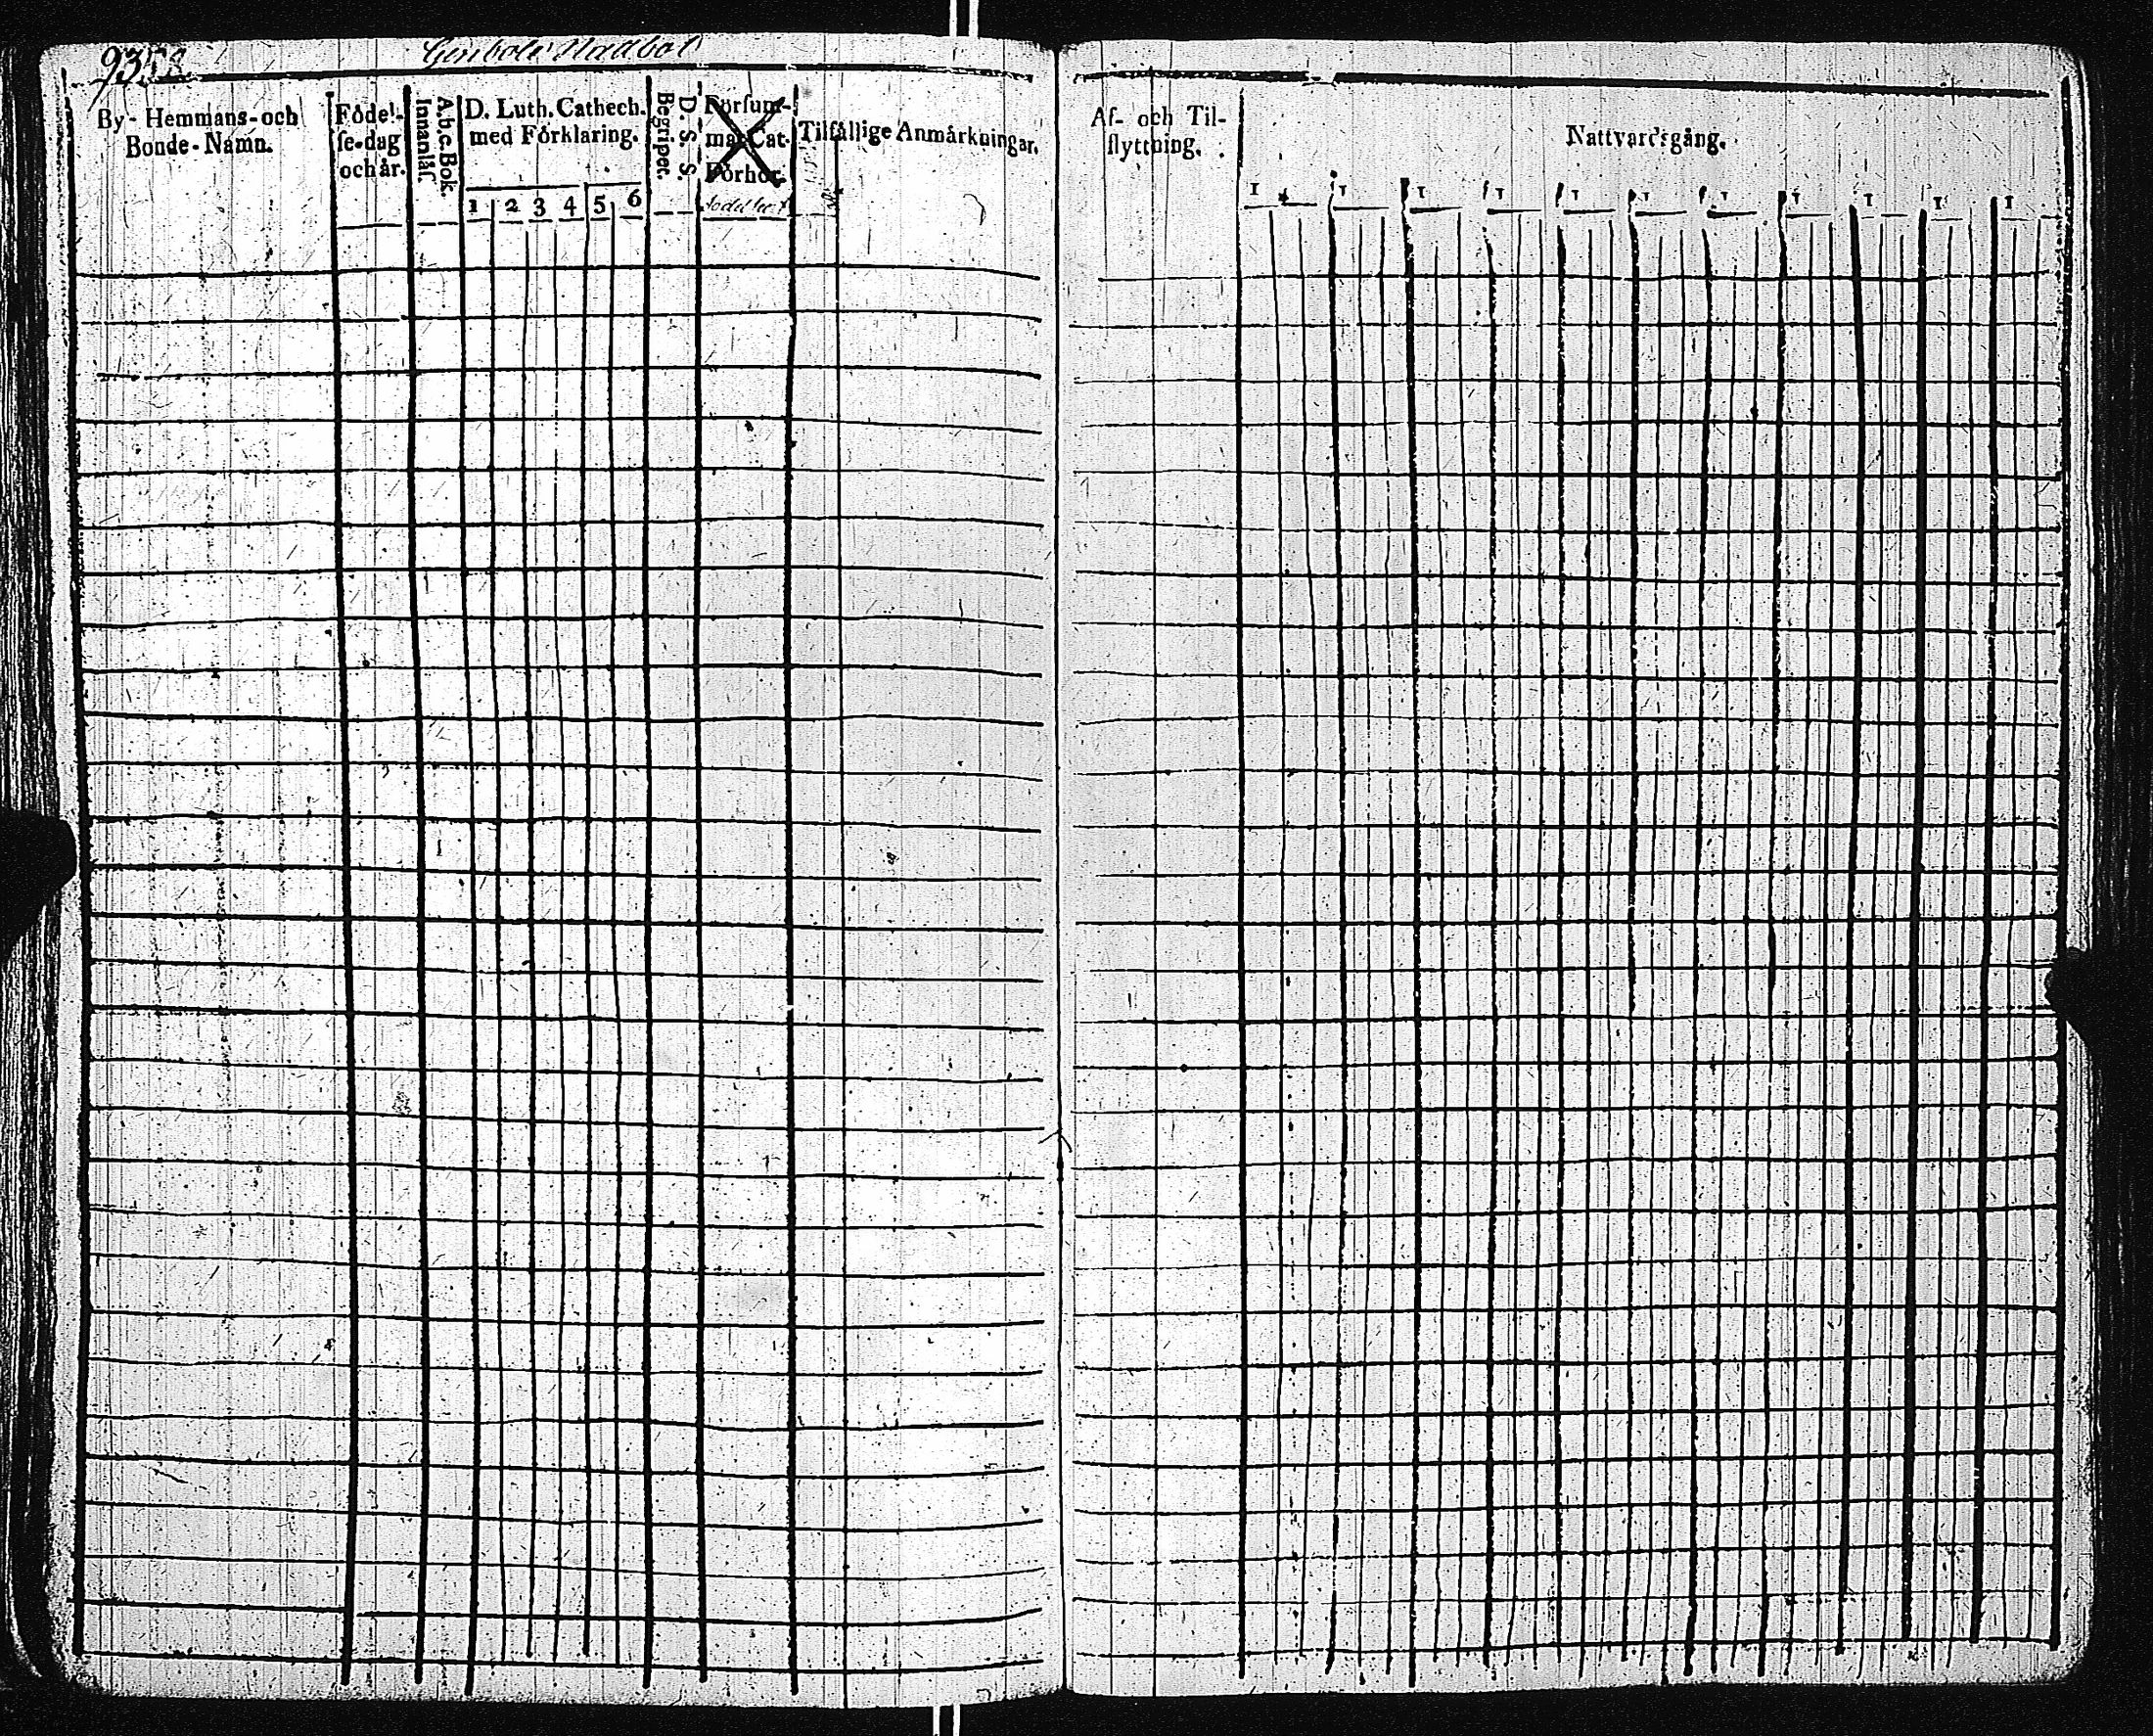 93
By- Hemmans- och
Bonde- Namn.
Födel-
se-dag
och år.
A.b.c. Bok.
Innanläs.
D. Luth. Cathech.
med Förklaring.
1 2 3 4 5 6
D. S. S.
Begriper.
Försum-
mat Cat.
Förhör.
Tilfällige Anmärkningar.
Af- och Til-
flyttning.
Nattvardsgång.
1 1 1 1 1 1 1 1 1 1 1